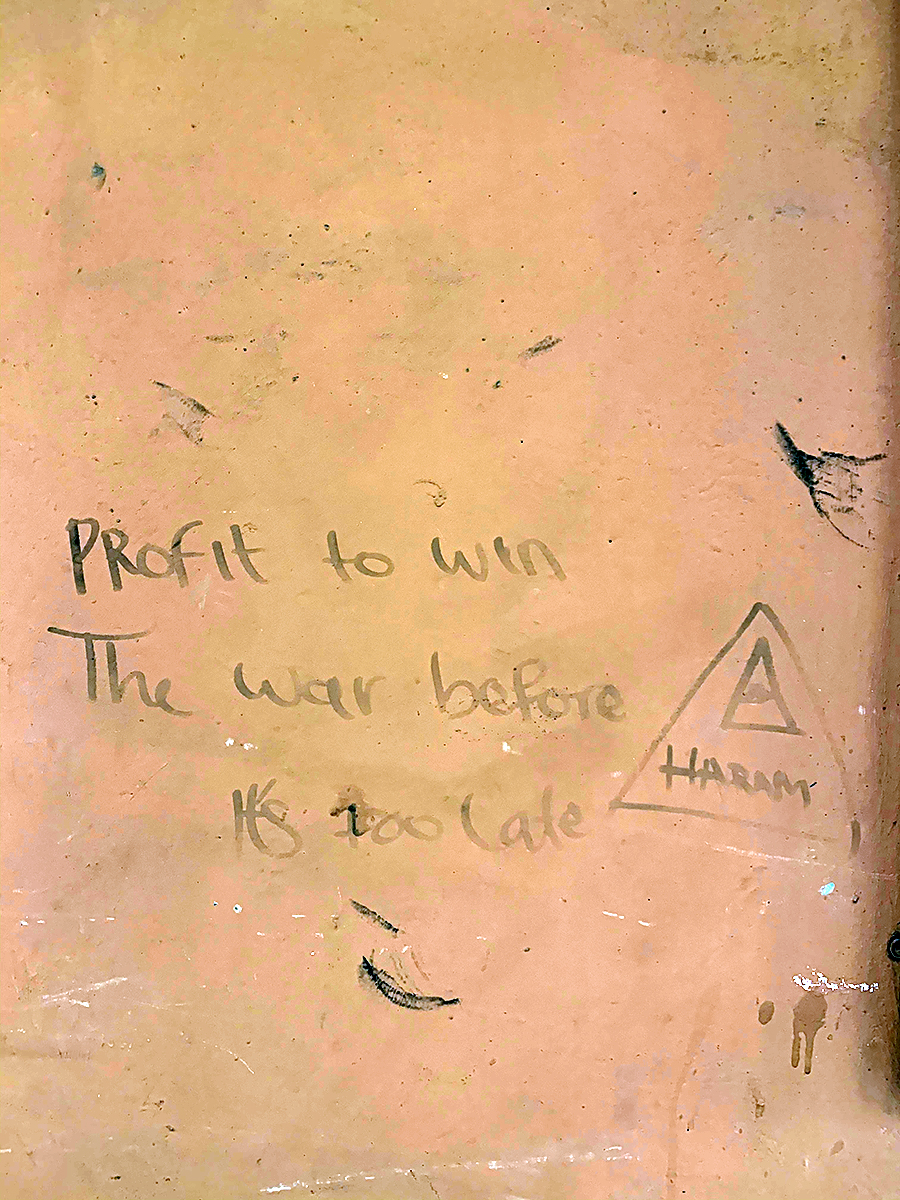 PRofit to win
The war before
It's too late
HARAM